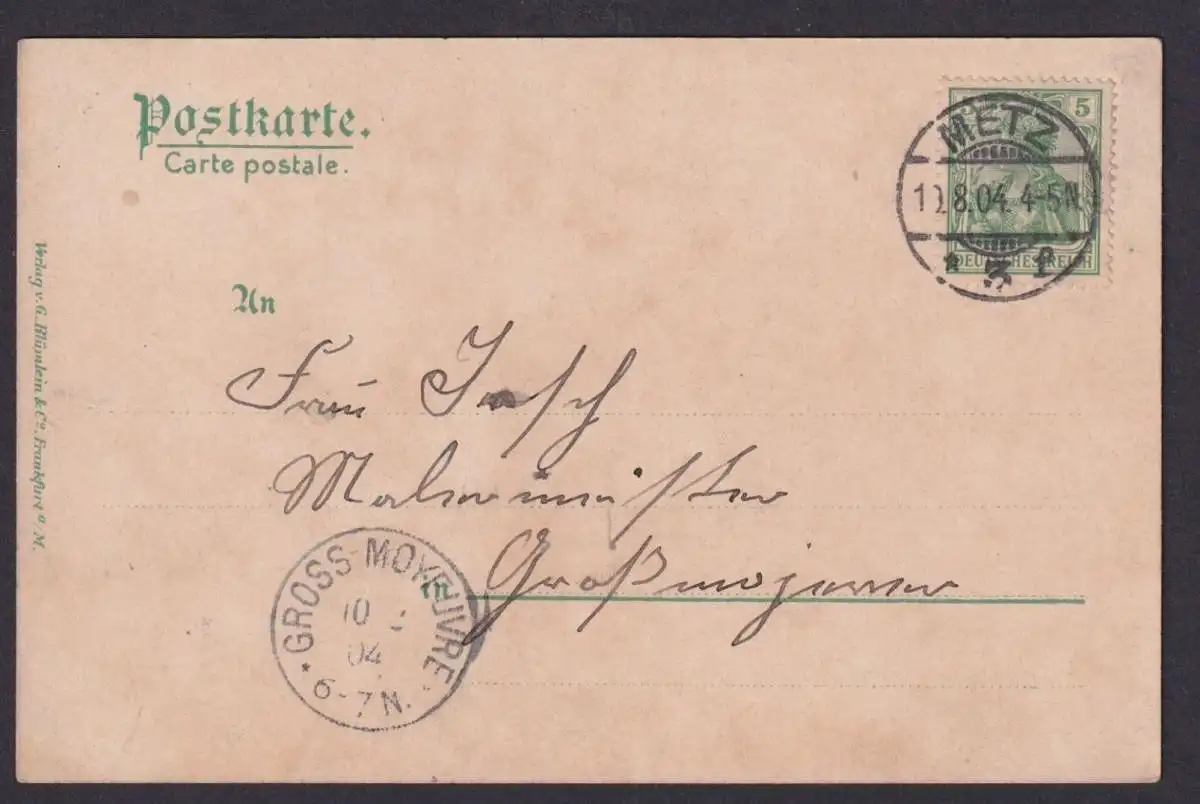 Postkarte.
Carte postale.
5
METZ
10.8.04. 4-5N.
* 3
DEUTSCHES REICH
Verlag v. G. Blümlein & Co. Frankfurt a/M.
An
Frau Jasch
Malermeister
in Großmojeuvre
GROSS-MOYEUVRE
10
04
6-7N.